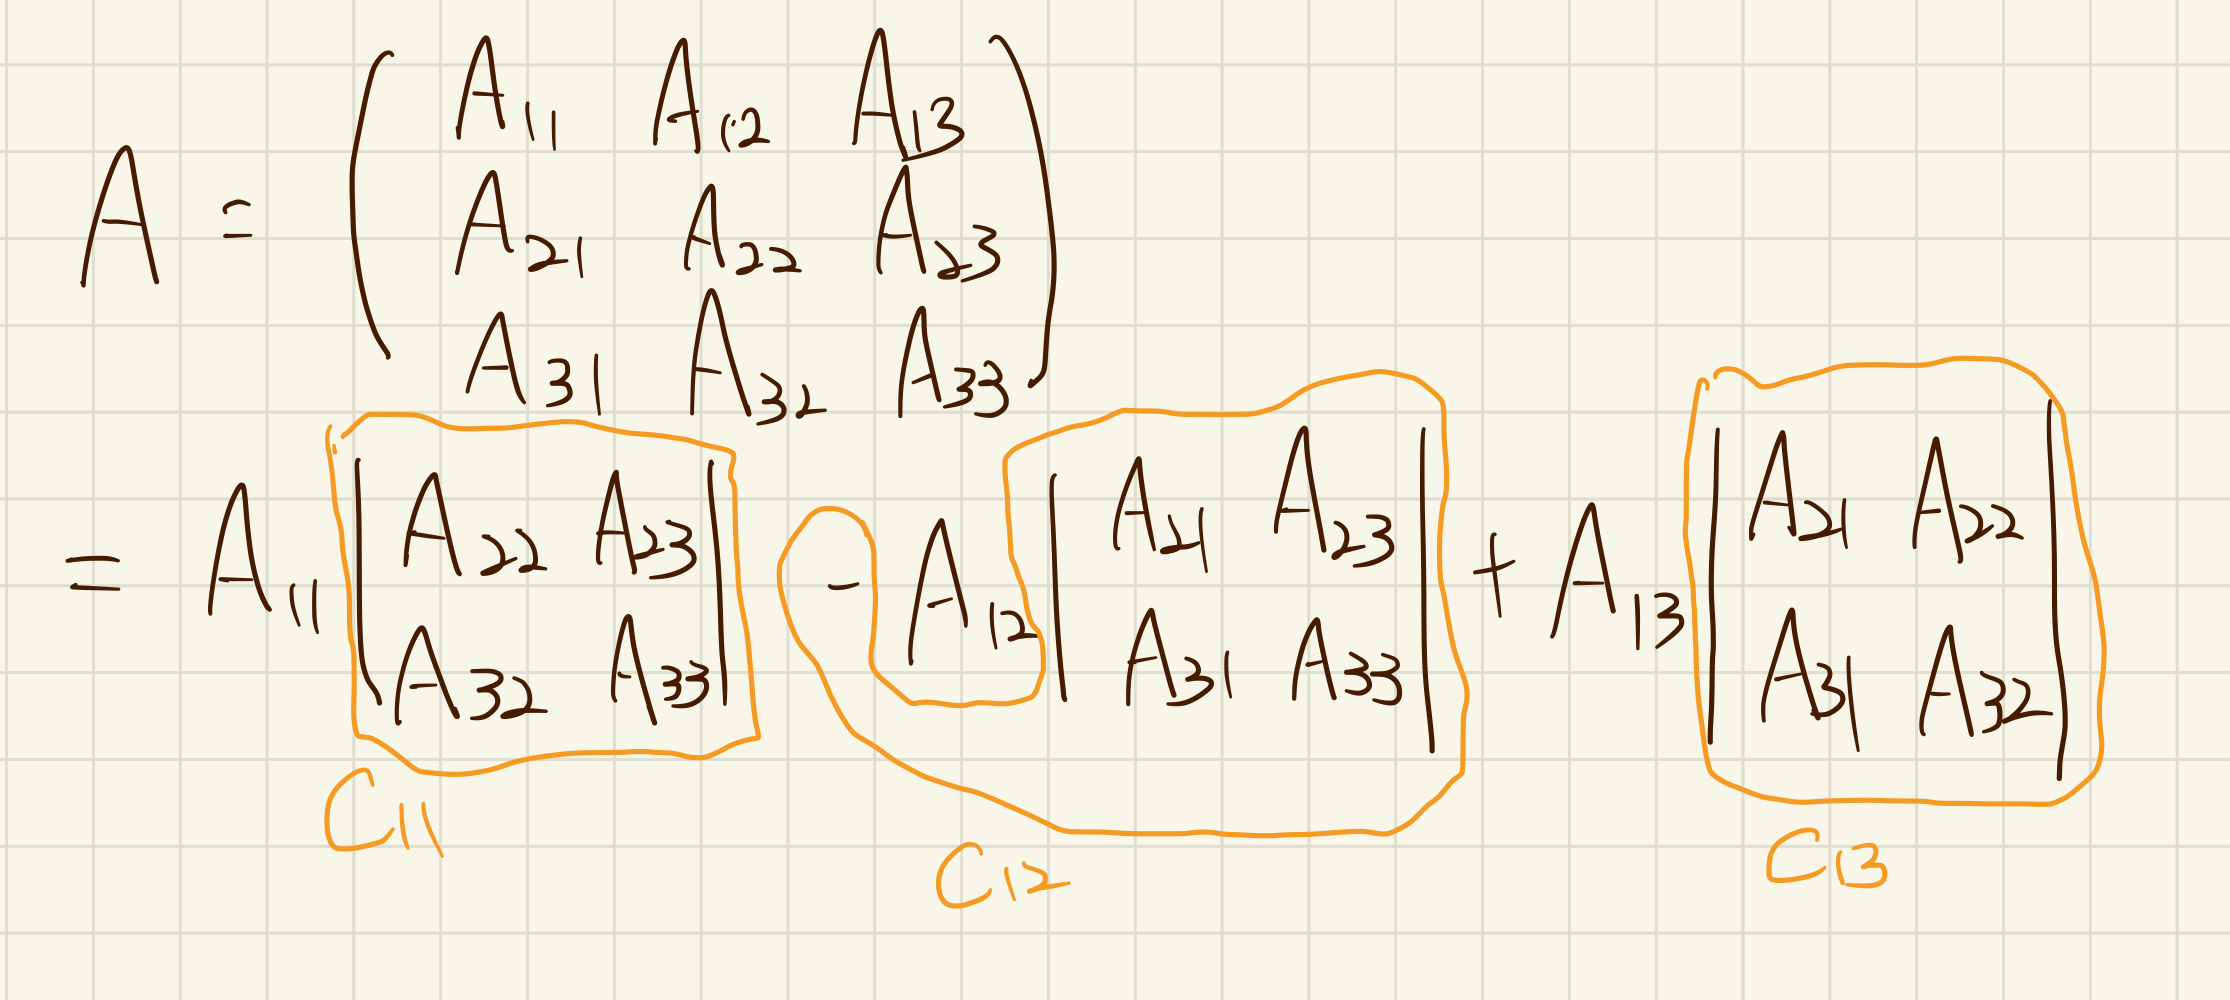 A = ( A11 A12 A13
A21 A22 A23
A31 A32 A33 )
= A11 | A22 A23 | - A12 | A21 A23 | + A13 | A21 A22 |
| A32 A33 | | A31 A33 | | A31 A32 |
C11 C12 C13